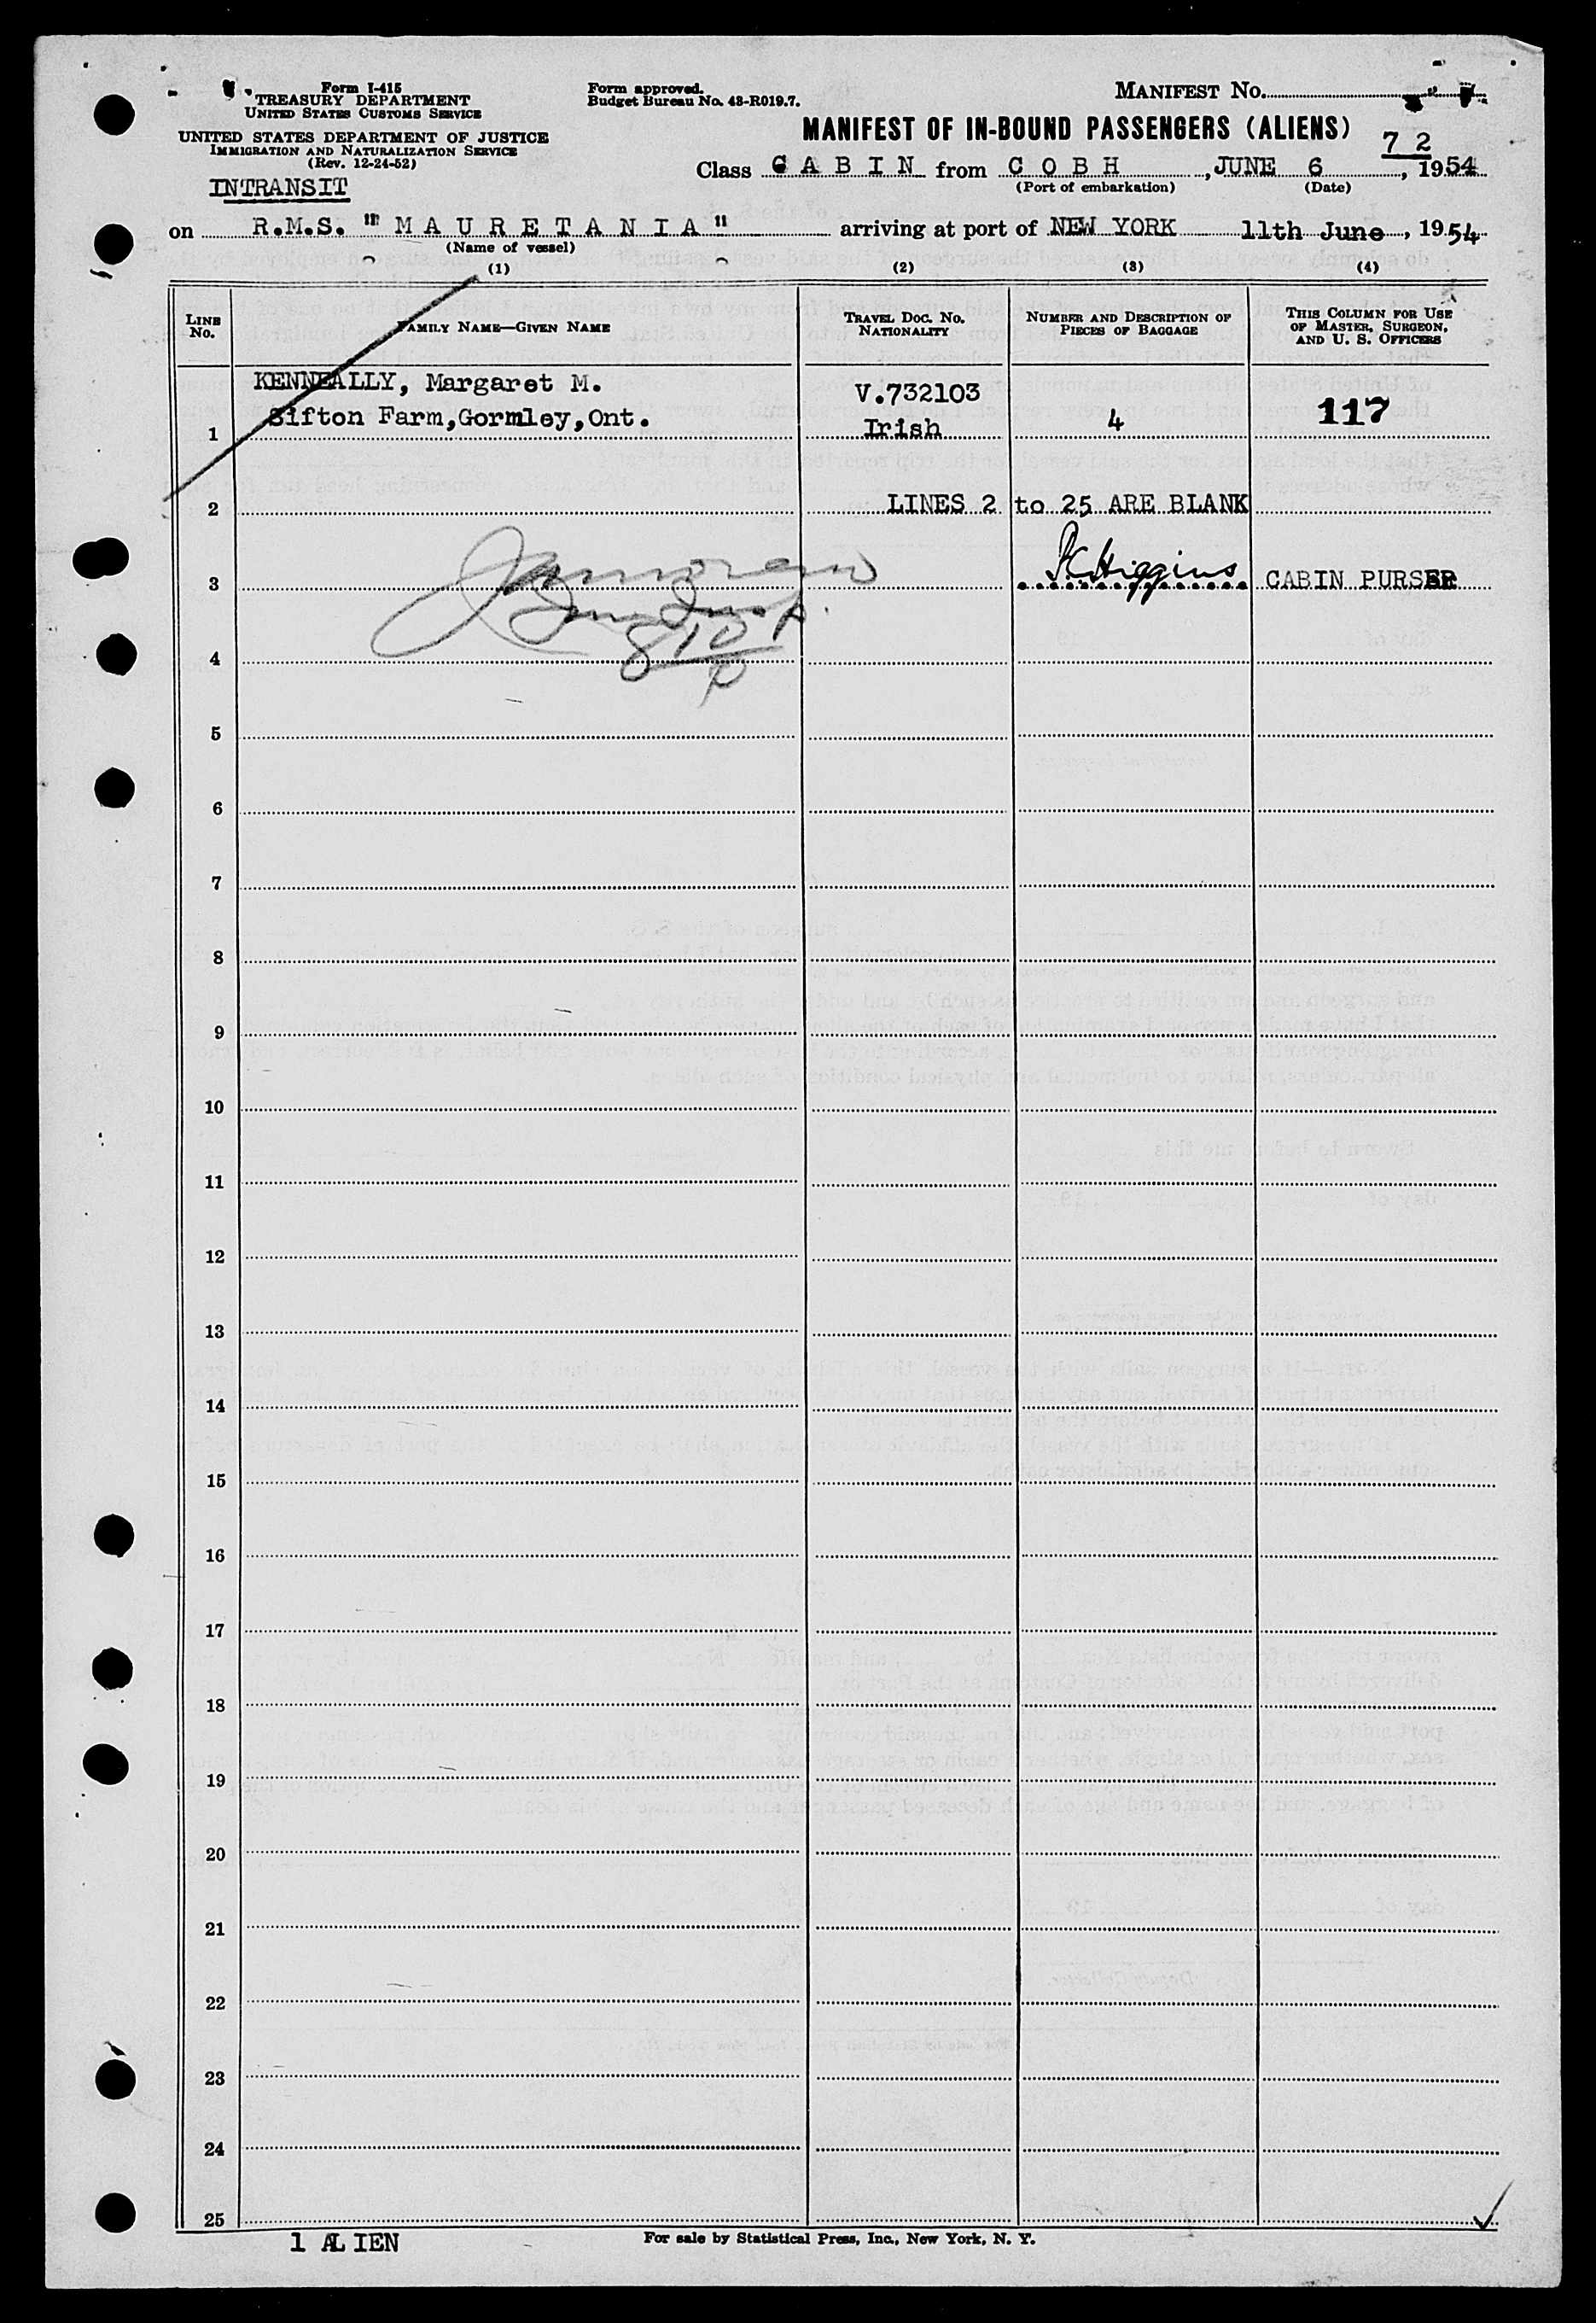 Form I-415
TREASURY DEPARTMENT
UNITED STATES CUSTOMS SERVICE
UNITED STATES DEPARTMENT OF JUSTICE
IMMIGRATION AND NATURALIZATION SERVICE
(Rev. 12-24-52)
INTRANSIT
Form approved.
Budget Bureau No. 43-R019.7.
MANIFEST No.
MANIFEST OF IN-BOUND PASSENGERS (ALIENS)
7 2
Class C A B I N from C O B H, JUNE 6, 1954
(Port of embarkation) (Date)
on R.M.S. "M A U R E T A N I A" arriving at port of NEW YORK 11th June, 1954
(Name of vessel)
(1) (2) (3) (4)
LINE No. FAMILY NAME—GIVEN NAME TRAVEL DOC. No. NATIONALITY NUMBER AND DESCRIPTION OF PIECES OF BAGGAGE THIS COLUMN FOR USE OF MASTER, SURGEON, AND U. S. OFFICERS
KENNEALLY, Margaret M. V.732103
1 Sifton Farm,Gormley,Ont. Irish 4 117
2 LINES 2 to 25 ARE BLANK
3 Higgins CABIN PURSER
4
5
6
7
8
9
10
11
12
13
14
15
16
17
18
19
20
21
22
23
24
25
1 ALIEN
For sale by Statistical Press, Inc., New York, N. Y.